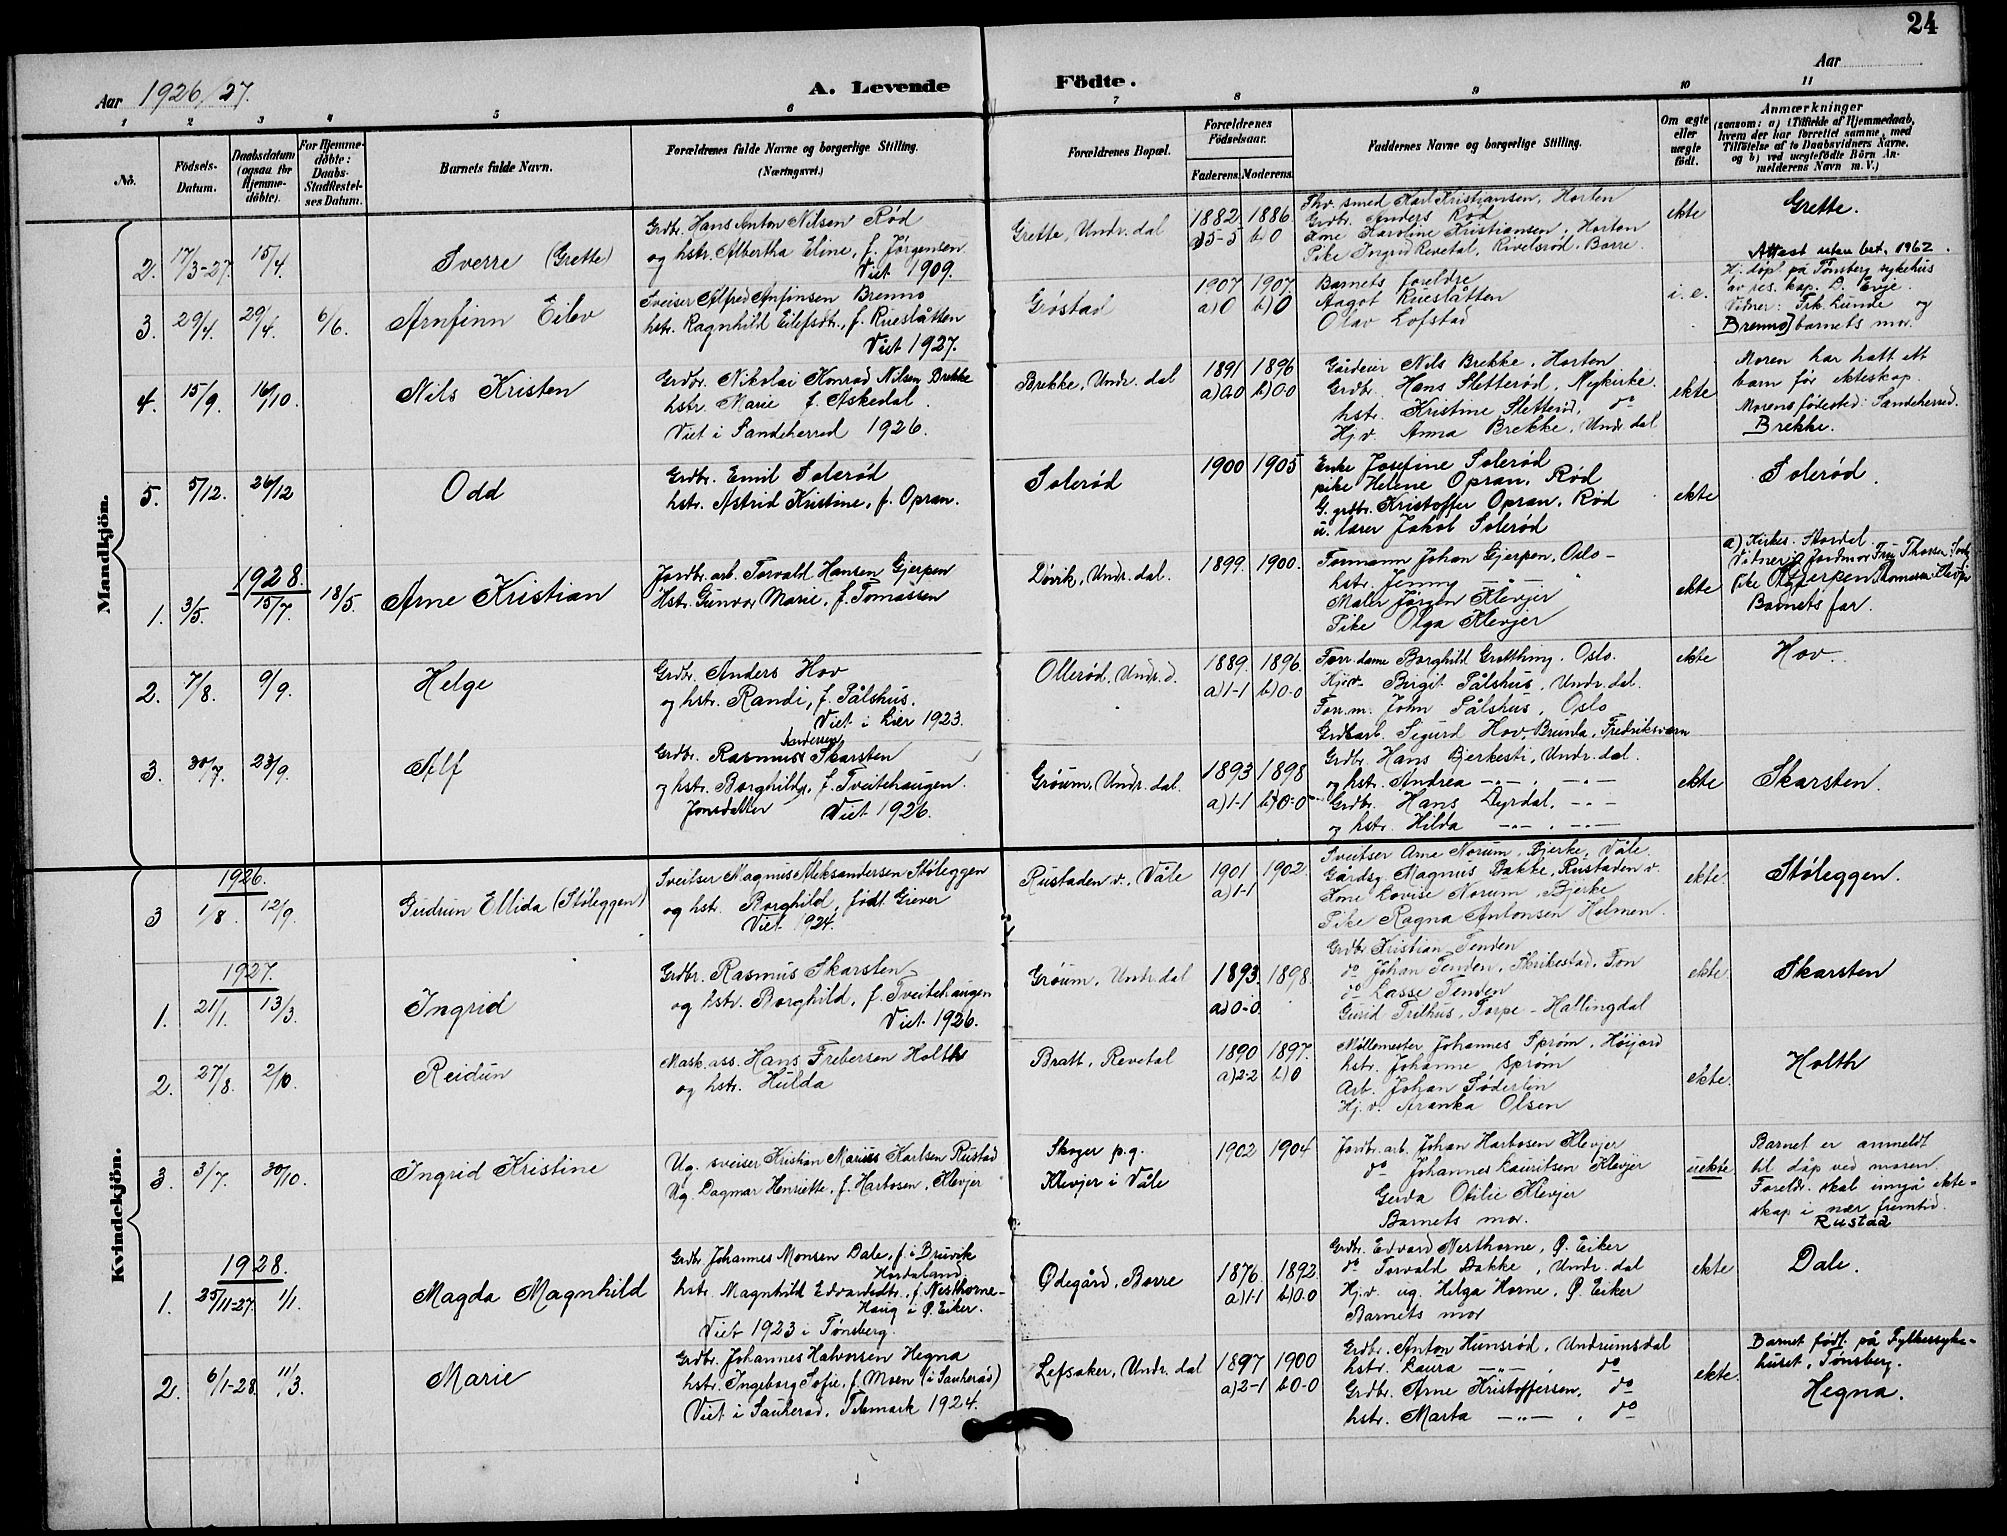 24
Aar 1926/27.
A. Levende Födte.
Aar
1 2 3 4 5 6 7 8 9 10 11
No.
Födsels-Datum.
Daabsdatum (ogsaa for Hjemme-döbte).
For Hjemme-döbte: Daabs-Stadfæstel-ses Datum.
Barnets fulde Navn.
Forældrenes fulde Navne og borgerlige Stilling.
(Næringsvei.)
Forældrenes Bopæl.
Forældrenes Födselsaar.
Faderens. Moderens.
Faddernes Navne og borgerlige Stilling.
Om ægte eller uægte födt.
Anmærkninger
(saasom: a) i Tilfælde af Hjemmedaab,
hvem der har forrettet samme, med
Tilföielse af to Daabsvidners Navne,
og b) ved uægtefödte Börn An-
melderens Navn m. V.)
Mandkjön.
2. 17/3-27. 15/4. Sverre (Grette)
Grdbr. Hans Anton Nilsen Rød
og hstr. Albertha Eline, f. Jørgensen
Viet 1909.
Grette, Undr.dal
1882 1886
a) 5-5 b) 0
Thv. smed Karl Kristiansen, Horten
Grdbr. Anders Rød
Kone Karoline Kristiansen, Horten
Pike Ingrid Revetal, Rivelsrød, Borre.
ekte
Grette.
Attest uten bet. 1962.
3. 29/4. 29/4. 6/6. Arnfinn Eilev
Sveiser Alfred Anfinsen Brenno
hstr. Ragnhild Eilefsdtr., f. Rueslåtten
Viet 1927.
Grøstad
1907 1907
a) 0 b) 0
Barnets foreldre
Aagot Rueslåtten
Olav Lofstad
i. e.
Hj. døpt på Tønsberg sykehus
av res. kap. D. Evje.
Vidner: Frk. Lunde og
Brenno] barnets mor.
4. 15/9. 16/10. Nils Kristen
Grdbr. Nikolai Konrad Nilsen Brekke
hstr. Marie f. Askedal.
Viet i Sandeherred 1926.
Brekke, Undr. dal
1891 1896
a) 0-0 b) 0-0
Gårdeier Nils Brekke, Horten
Grdbr. Hans Sletterød, Nykirke.
hstr. Kristine Sletterød, do
Hj.v. Anna Brekke, Undr. dal
ekte
Moren har hatt ett
barn før ekteskap.
Morens fødested: Sandeherred.
Brekke.
5. 5/12. 26/12 Odd
Grdbr. Emil Solerød
hstr. Astrid Kristine, f. Opran.
Solerød
1900 1905
Enke Josefine Solerød
pike Helene Opran, Rød
G. grdbr. Kristoffer Opran, Rød
u. lærer Jakob Solerød
ekte
Solerød.
1928.
1. 3/5. 15/7. 18/5. Arne Kristian
Jordbr. arb. Torvald Hansen Gjerpen
Hstr. Gunvor Marie, f. Tomassen
Døvik, Undr. dal.
1899. 1900.
Formann Johan Gjerpen, Oslo-
hstr. Jenny
Maler Jørgen Klevjer
Pike Olga Klevjer
ekte
a) Kirkes. Skordal
Vitner: Jordmor Frøy Thorsen
Gjerpen
Barnets far.
2. 7/8. 9/9. Helge
Grdbr. Anders Hov
og hstr. Randi, f. Pålshus.
Viet i Lier 1923.
Ollerød, Undr. d.
1889. 1896.
a) 1-1 b) 0-0
Forr. dame Borghild Gretthing, Oslo.
Hj.v. Birgit Pålshus, Undr. dal.
Forr. m. John Pålshus, Oslo
Grdbarb. Sigurd Hov Brunla, Fredriksværn
ekte
Hov.
3. 30/7. 23/9. Alf
Andersen
Grdbr. Rasmus Skarsten
og hstr. Borghild, f. Tveitehaugen.
Jonsdatter Viet 1926.
Grøum, Undr. dal.
1893 1898
a) 1-1 b) 0-0
Grdbr. Hans Bjerkesti, Undr. dal.
og hstr. Andrea -"- , -"-
Grdbr. Hans Dyrdal, -"-
og hstr. Hilda -"- , -"-
ekte
Skarsten.
Kvindekjön.
1926.
3 1/8. 12/9. Gudrun Ellida (Støleggen)
Sveitser Magnus Aleksandersen Støleggen
og hst. Borghild, født Giever
Viet 1924.
Rustaden v., Våle
1901 1902
a) 1-1
Sveitser Arne Norum, Bjerke, Våle.
Gårdsg. Magnus Bakke, Rustaden v.
Kone Lovise Norum, Bjerke
Pike Ragna Antonsen Holmen.
ekte.
Støleggen.
1927.
1. 21/1. 13/3. Ingrid
Grdbr. Rasmus Skarsten
og hstr. Borghild, f. Tveitehaugen
Viet 1926.
Grøum, Undr. dal
1893. 1898.
a) 0-0
Grdbr. Kristian Tenden
do Johan Tenden, Skrikestad, Fon
do Lasse Tenden
Gurid Trilhus, Torpe - Hallingdal
ekte.
Skarsten
2. 27/8. 2/10. Reidun
Mask. ass. Hans Frebersen Holth
og hstr. Hulda
Bratt, Revetal
1890 1897.
a) 2-2 b) 0
Møllemester Johannes Sprøm, Høijord
hstr. Johanne Sprøm
Arb. Johan Søderlin
Hj. v. Aranka Olsen
ekte.
Holth
3. 3/7. 30/10. Ingrid Kristine
Ug. sveiser Kristian Marius Karlsen Rustad
Ug. Dagmar Henriette, f. Harbosen, Klevjer
Skoger p.g.
Klevjer i Våle
1902 1904
Jordbr. arb. Johan Harbosen Klevjer
do Johannes Lauritsen Klevjer
Gerda Otilie Klevjer
Barnets mor.
uekte
Barnet er anmeldt
til dåp ved moren.
Foreldr. skal inngå ekte-
skap i nær fremtid.
Rustad
1928.
1. 25/11-27. 1/1. Magda Magnhild
Grdbr. Johannes Monsen Dale, f. i Bruvik
Hordaland
hstr. Magnhild Edvardsdtr., f. Nesthorne-
Haug i Ø. Eiker.
Viet 1923 i Tønsberg.
Ødegård, Borre
1876. 1892.
a) 1-1 b) 0-0
Grdbr. Edvard Nesthorne, Ø. Eiker
do Torvald Bakke, Undr. dal
Hj.v. ug. Helga Horne, Ø. Eiker
Barnets mor
ekte
Dale.
2. 6/1-28. 11/3. Marie
Grdbr. Johannes Halvorsen Hegna
hstr. Ingeborg Sofie, f. Moen (i Sauherad)
Viet i Sauherad, Telemark 1924.
Lefsaker, Undr. dal
1897 1900
a) 2-1 b) 0-0
Grdbr. Anton Hunsrød, Undrumsdal
hstr. Laura -"- , do
Grdbr. Arne Kristoffersen, do
hstr. Marta -"- , do
ekte.
Barnet født på Fylkessyke-
huset, Tønsberg.
Hegna.